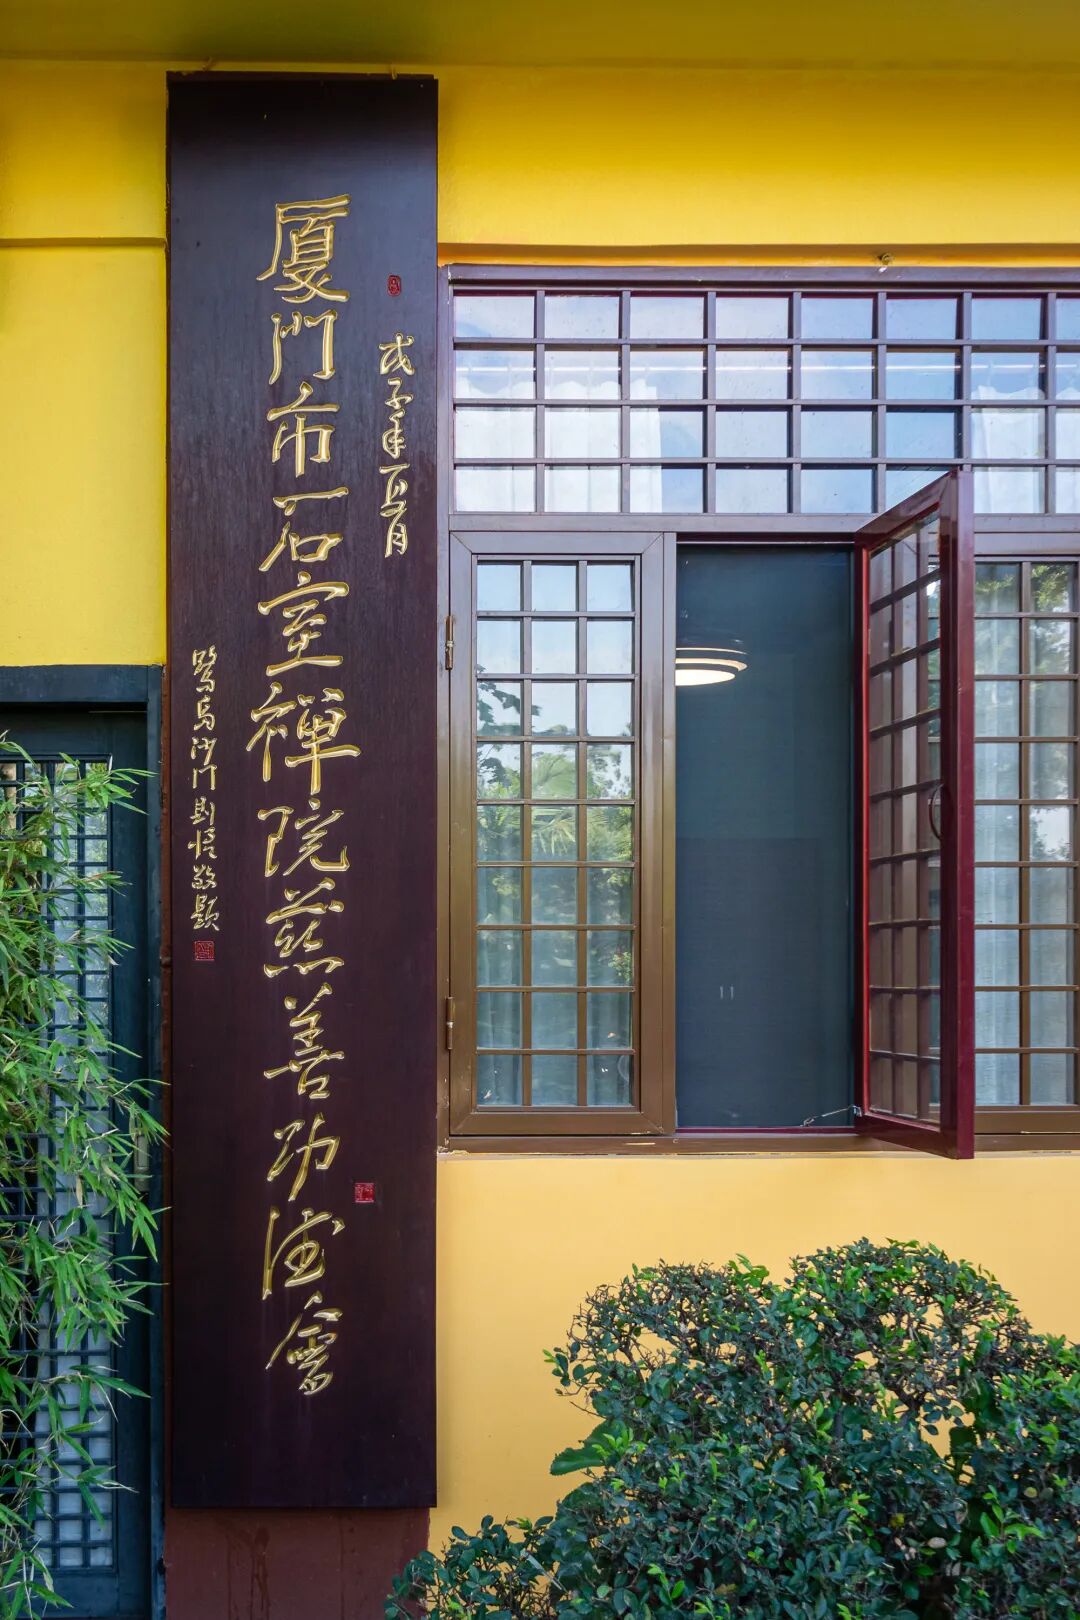 戊子年五月
厦門市石室禪院慈善功德會
鷺島沙門則悟敬題